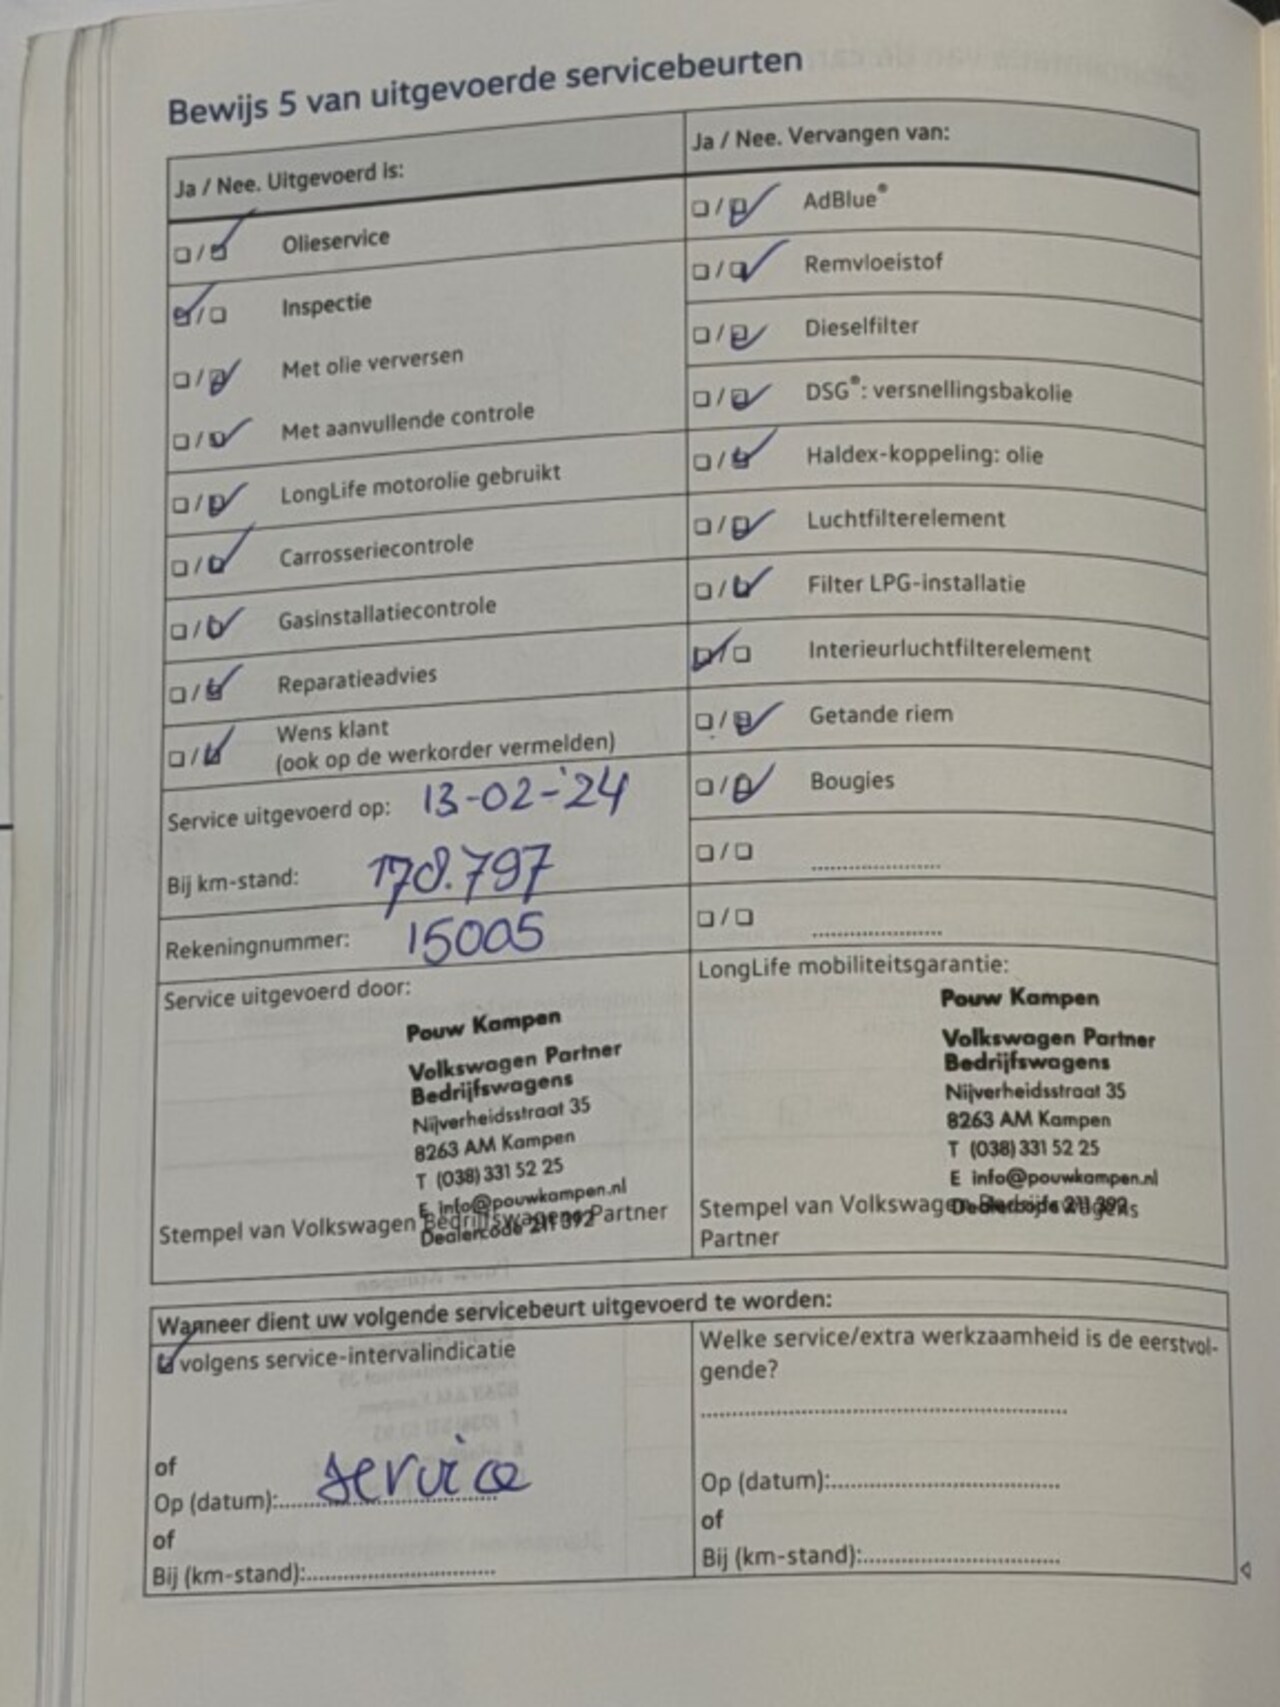 Bewijs 5 van uitgevoerde servicebeurten
Ja / Nee. Uitgevoerd is:
Olieservice
Inspectie
Met olie verversen
Met aanvullende controle
LongLife motorolie gebruikt
Carrosseriecontrole
Gasinstallatiecontrole
Reparatieadvies
Wens klant
(ook op de werkorder vermelden)
Service uitgevoerd op: 13-02-'24
Bij km-stand: 178.797
Rekeningnummer: 15005
Service uitgevoerd door:
Pouw Kampen
Volkswagen Partner
Bedrijfswagens
Nijverheidsstraat 35
8263 AM Kampen
T (038) 331 52 25
E info@pouwkampen.nl
Dealercode 211 392
Stempel van Volkswagen Bedrijfswagens Partner
Ja / Nee. Vervangen van:
AdBlue®
Remvloeistof
Dieselfilter
DSG®: versnellingsbakolie
Haldex-koppeling: olie
Luchtfilterelement
Filter LPG-installatie
Interieurluchtfilterelement
Getande riem
Bougies
LongLife mobiliteitsgarantie:
Pouw Kampen
Volkswagen Partner
Bedrijfswagens
Nijverheidsstraat 35
8263 AM Kampen
T (038) 331 52 25
E info@pouwkampen.nl
Dealercode 211 392
Stempel van Volkswagen Bedrijfswagens
Partner
Wanneer dient uw volgende servicebeurt uitgevoerd te worden:
volgens service-intervalindicatie
of
Op (datum): service
of
Bij (km-stand):
Welke service/extra werkzaamheid is de eerstvol-
gende?
Op (datum):
of
Bij (km-stand):